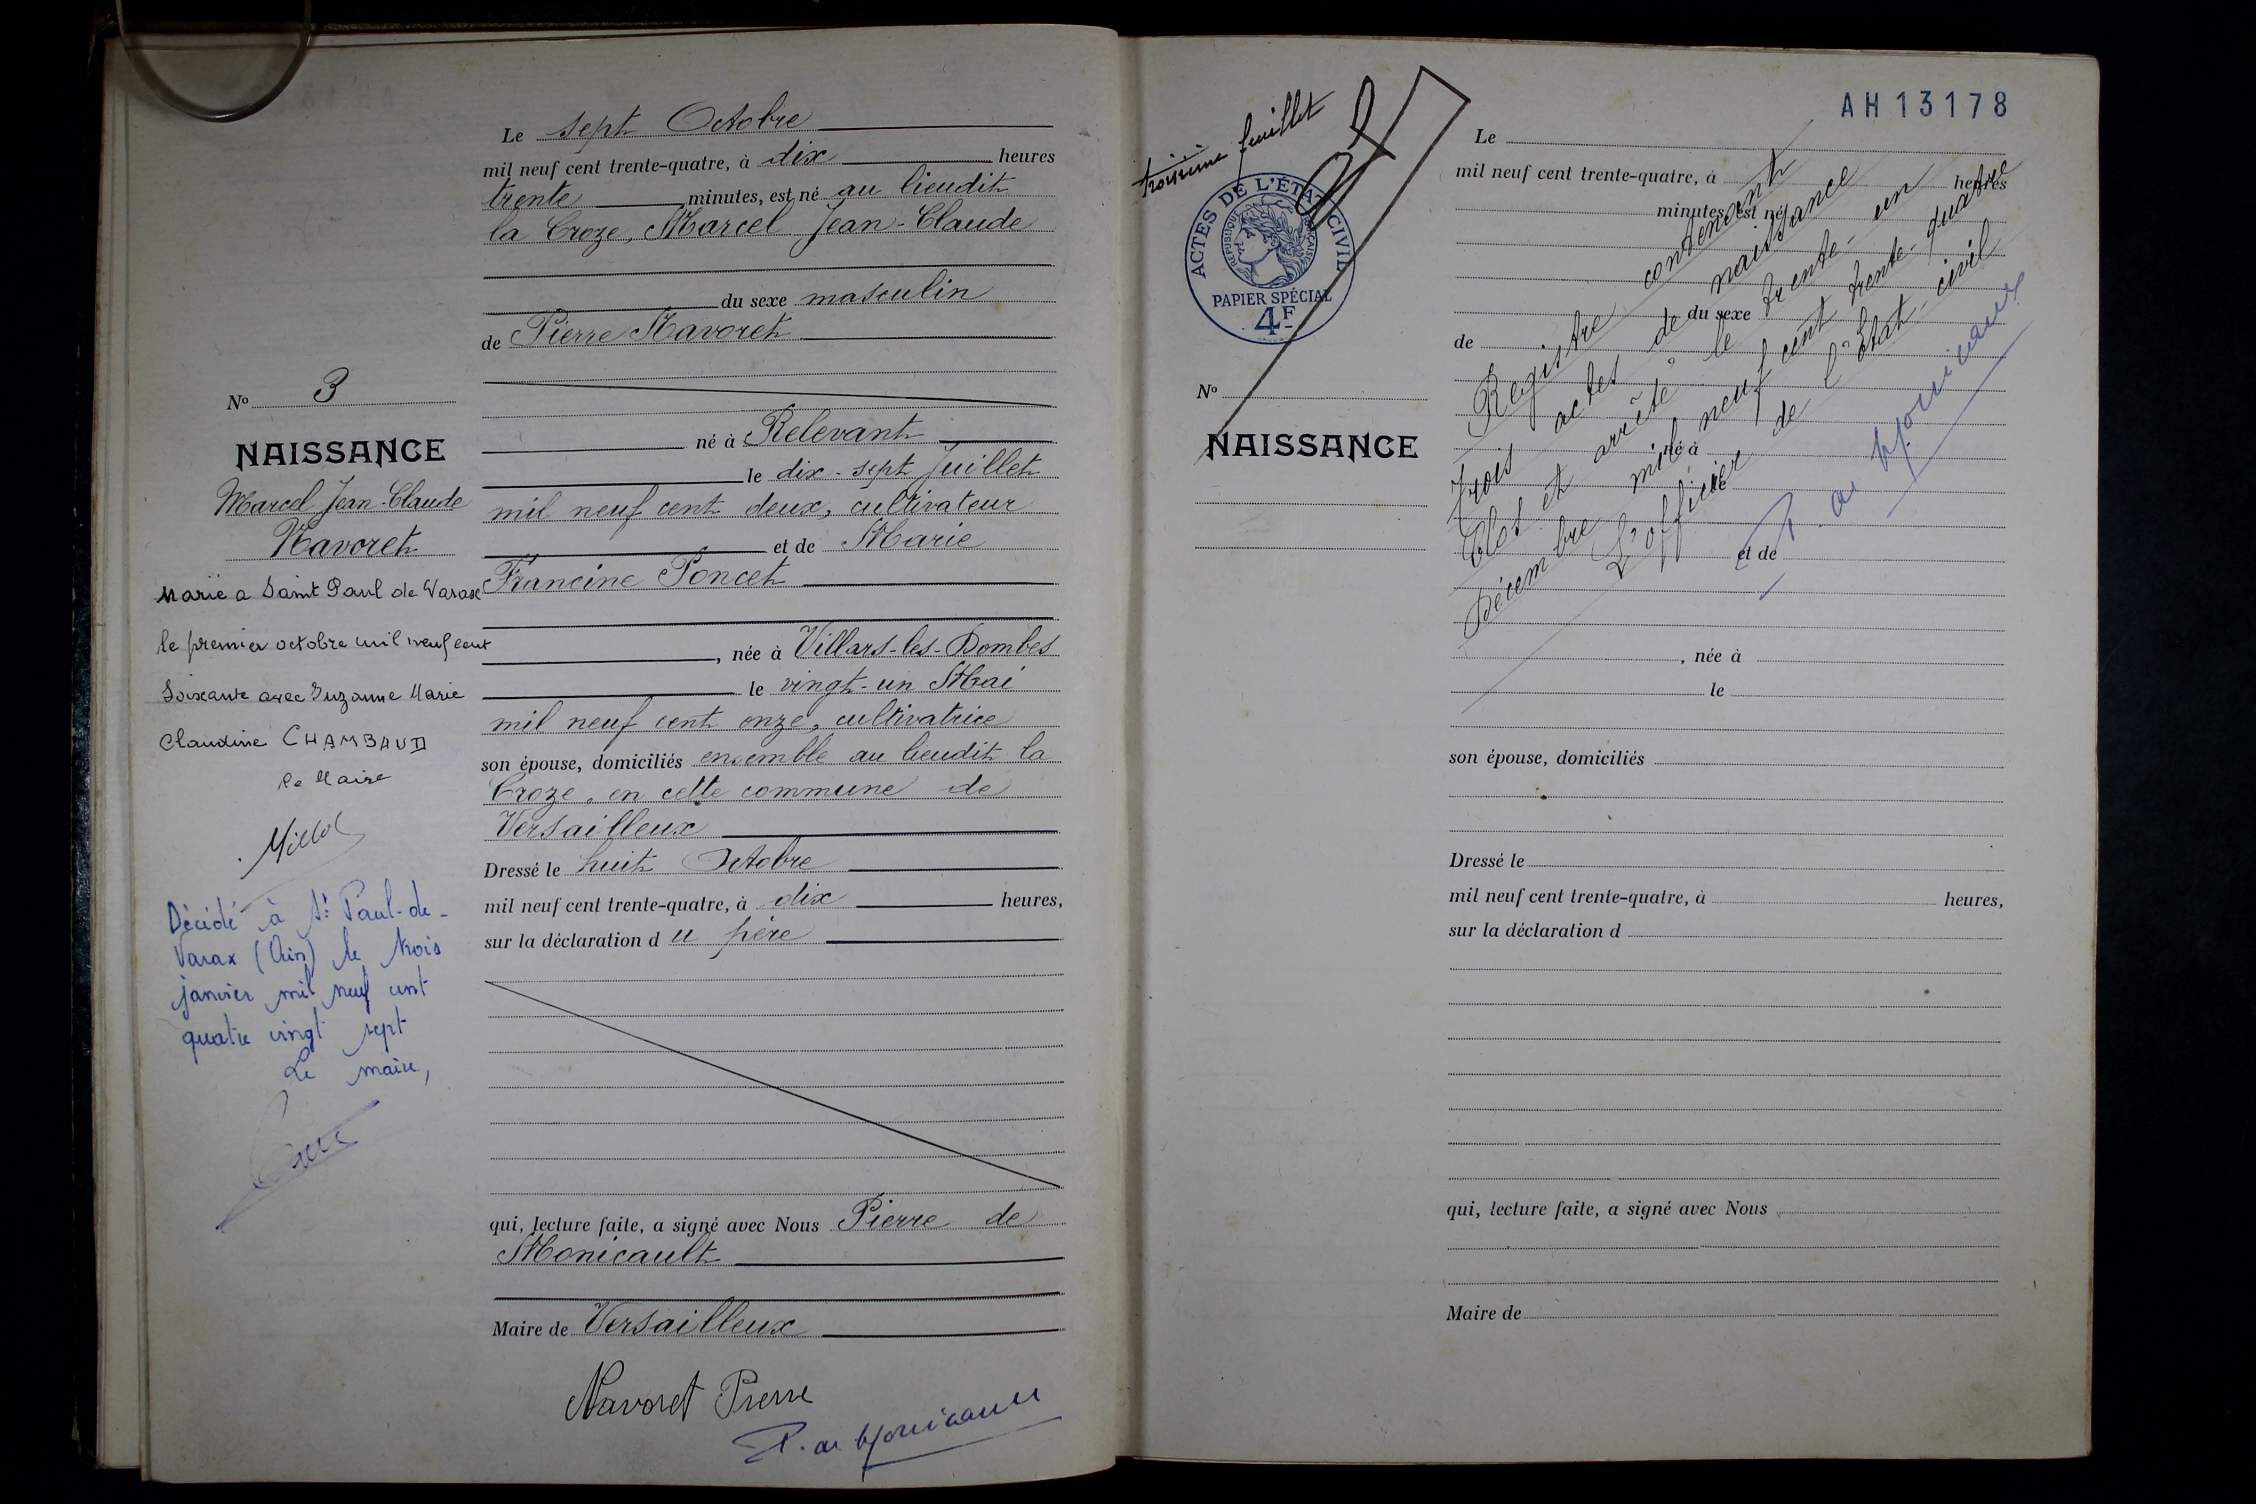 Le sept Octobre
mil neuf cent trente-quatre, à dix heures
trente minutes, est né au lieudit
la Croze, Marcel Jean-Claude
du sexe masculin
de Pierre Navoret
né à Relevant
le dix-sept Juillet
mil neuf cent deux, cultivateur
et de Marie
Francine Poncet
, née à Villars-les-Dombes
le vingt-un Mai
mil neuf cent onze, cultivatrice
son épouse, domiciliés ensemble au lieudit la
Croze, en cette commune de
Versailleux
Dressé le huit Octobre
mil neuf cent trente-quatre, à dix heures,
sur la déclaration du père
qui, lecture faite, a signé avec Nous Pierre de
Monicault
Maire de Versailleux
Navoret Pierre
P. de Monicault
No 3
NAISSANCE
Marcel Jean-Claude
Navoret
Marié a Saint Paul de Varax
le premier octobre mil neuf cent
Soixante avec Suzanne Marie
Claudine CHAMBAUD
Le Maire
Décédé à St Paul-de-
Varax (Ain) le trois
janvier mil neuf cent
quatre vingt sept
Le maire,
troisième feuillet
ACTES DE L'ÉTAT CIVIL
RÉPUBLIQUE FRANÇAISE
PAPIER SPÉCIAL
4F
No
NAISSANCE
AH 13178
Le
mil neuf cent trente-quatre, à heures
minutes, est né
du sexe
de
né à
le
et de
, née à
le
son épouse, domiciliés
Dressé le
mil neuf cent trente-quatre, à heures,
sur la déclaration d
qui, lecture faite, a signé avec Nous
Maire de
Registre contenant
trois actes de naissance
Clos et arrêté le trente-un
Décembre mil neuf cent trente-quatre
L'officier de l'Etat-civil
P. de Monicault